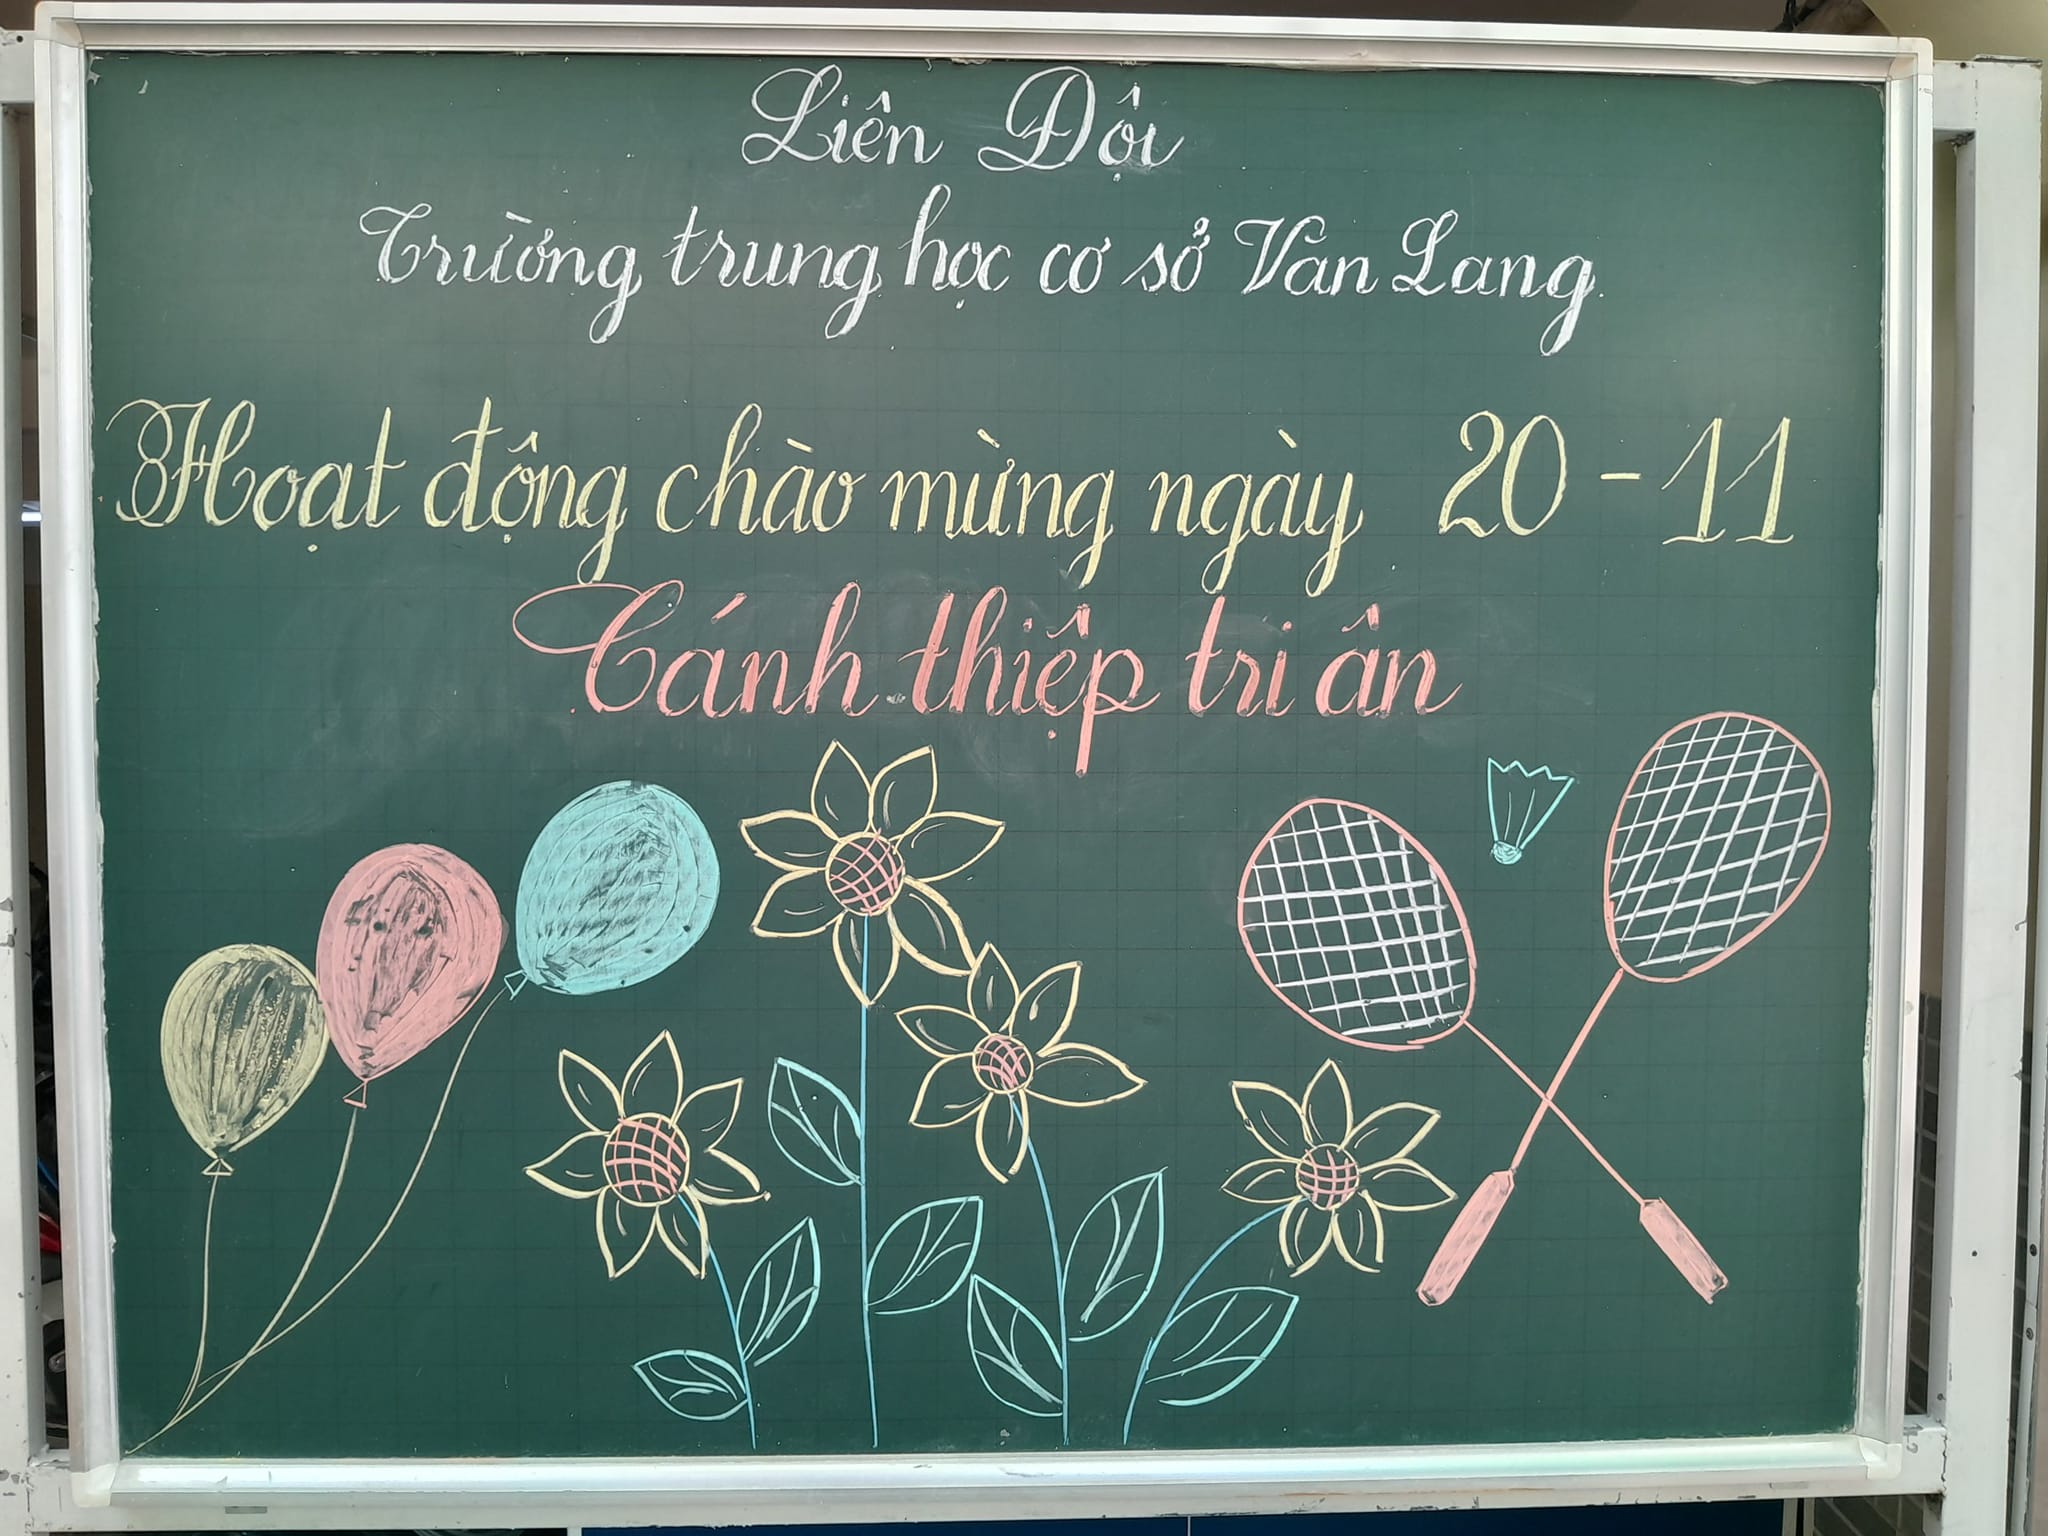 Liên Đội
Trường trung học cơ sở Văn Lang
Hoạt động chào mừng ngày 20-11
Cánh thiệp tri ân